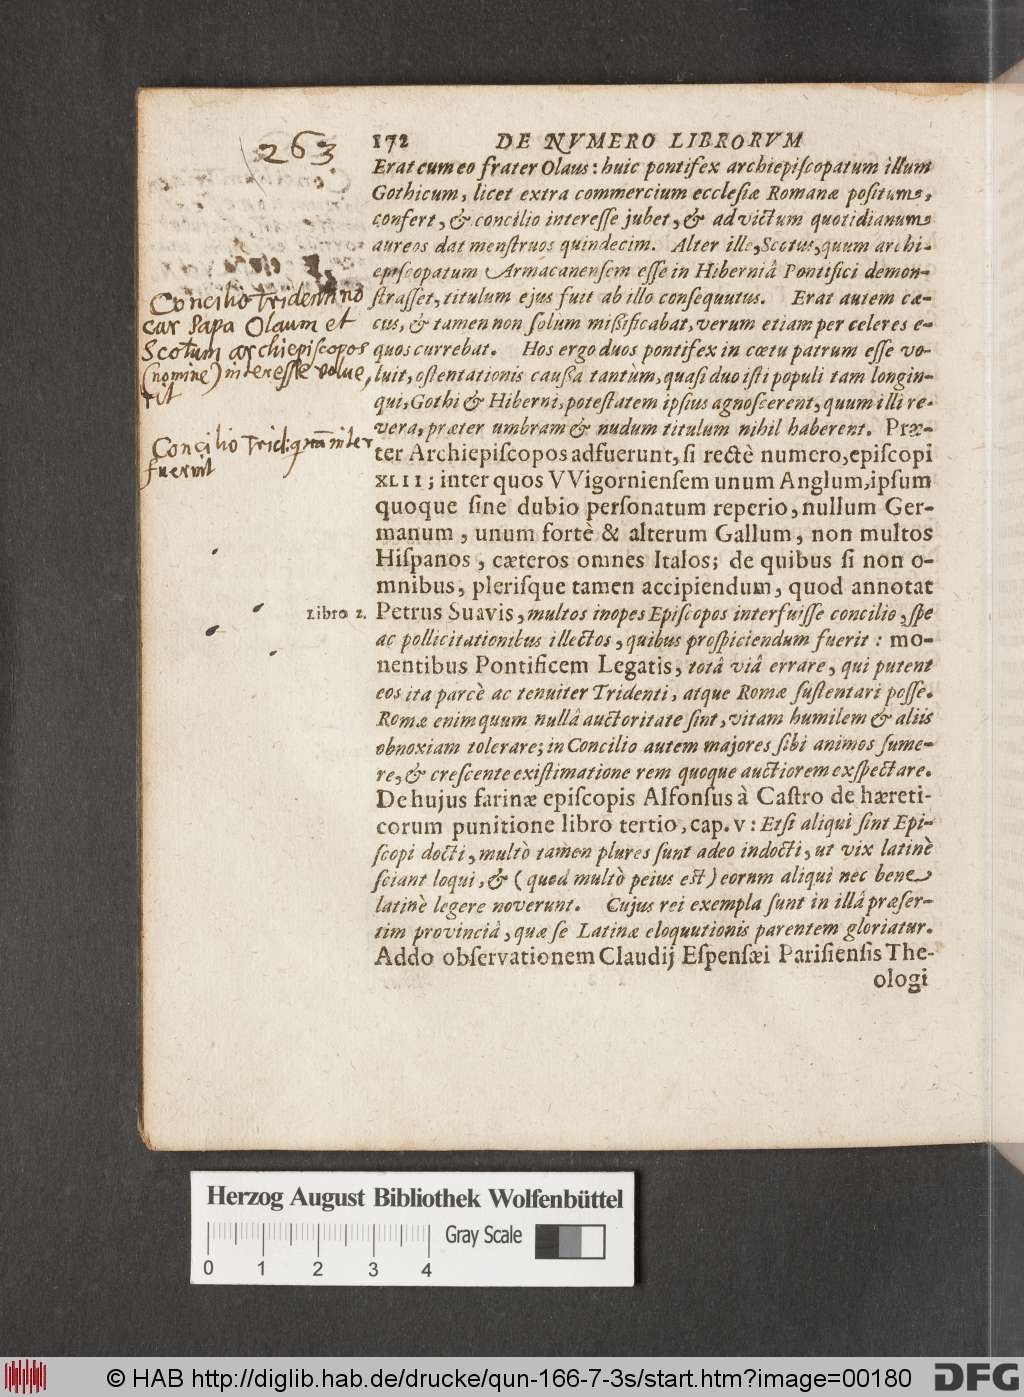 263
172 DE NVMERO LIBRORVM
Erat cum eo frater Olaus: huic pontifex archiepiſcopatum illum
Gothicum, licet extra commercium eccleſiæ Romanæ poſitum,
confert, & concilio intereſſe jubet, & ad victum quotidianum
aureos dat menſtruos quindecim. Alter ille, Scotus, quum archi-
epiſcopatum Armacanenſem eſſe in Hiberniâ Pontifici demon-
ſtraſſet, titulum ejus fuit ab illo conſequutus. Erat autem cæ-
cus, & tamen non ſolum miſſificabat, verum etiam per celeres e-
quos currebat. Hos ergo duos pontifex in cœtu patrum eſſe vo-
luit, oſtentationis cauſſa tantùm, quaſi duo iſti populi tam longin-
qui, Gothi & Hiberni, poteſtatem ipſius agnoſcerent, quum illi re-
vera, præter umbram & nudum titulum nihil haberent. Præ-
ter Archiepiſcopos adfuerunt, ſi rectè numero, epiſcopi
XLII; inter quos VVigornienſem unum Anglum, ipſum
quoque ſine dubio perſonatum reperio, nullum Ger-
manum, unum fortè & alterum Gallum, non multos
Hiſpanos, cæteros omnes Italos; de quibus ſi non o-
mnibus, pleriſque tamen accipiendum, quod annotat
Petrus Suavis, multos inopes Epiſcopos interfuiſſe concilio, ſpe
ac pollicitationibus illectos, quibus proſpiciendum fuerit: mo-
nentibus Pontificem Legatis, totâ viâ errare, qui putent
eos ita parcè ac tenuiter Tridenti, atque Romæ ſuſtentari poſſe.
Romæ enim quum nullâ auctoritate ſint, vitam humilem & aliis
obnoxiam tolerare; in Concilio autem majores ſibi animos ſume-
re, & creſcente exiſtimatione rem quoque auctiorem exſpectare.
De hujus farinæ epiſcopis Alfonſus à Caſtro de hæreti-
corum punitione libro tertio, cap. v: Etſi aliqui ſint Epi-
ſcopi docti, multò tamen plures ſunt adeo indocti, ut vix latinè
ſciant loqui, & (quod multò peius est) eorum aliqui nec bene
latinè legere noverunt. Cujus rei exempla ſunt in illâ præſer-
tim provinciâ, quæ ſe Latinæ eloquutionis parentem gloriatur.
Addo obſervationem Claudij Eſpenſæi Pariſienſis The-
ologi
Concilio Tridentino
cur Papa Olaum et
Scotum archiepiscopos
(nomine) interesse volue,
rit
Concilio Trid: qnam inter
fuerint
Libro 2.
Herzog August Bibliothek Wolfenbüttel
Gray Scale
0 1 2 3 4
© HAB http://diglib.hab.de/drucke/qun-166-7-3s/start.htm?image=00180
DFG